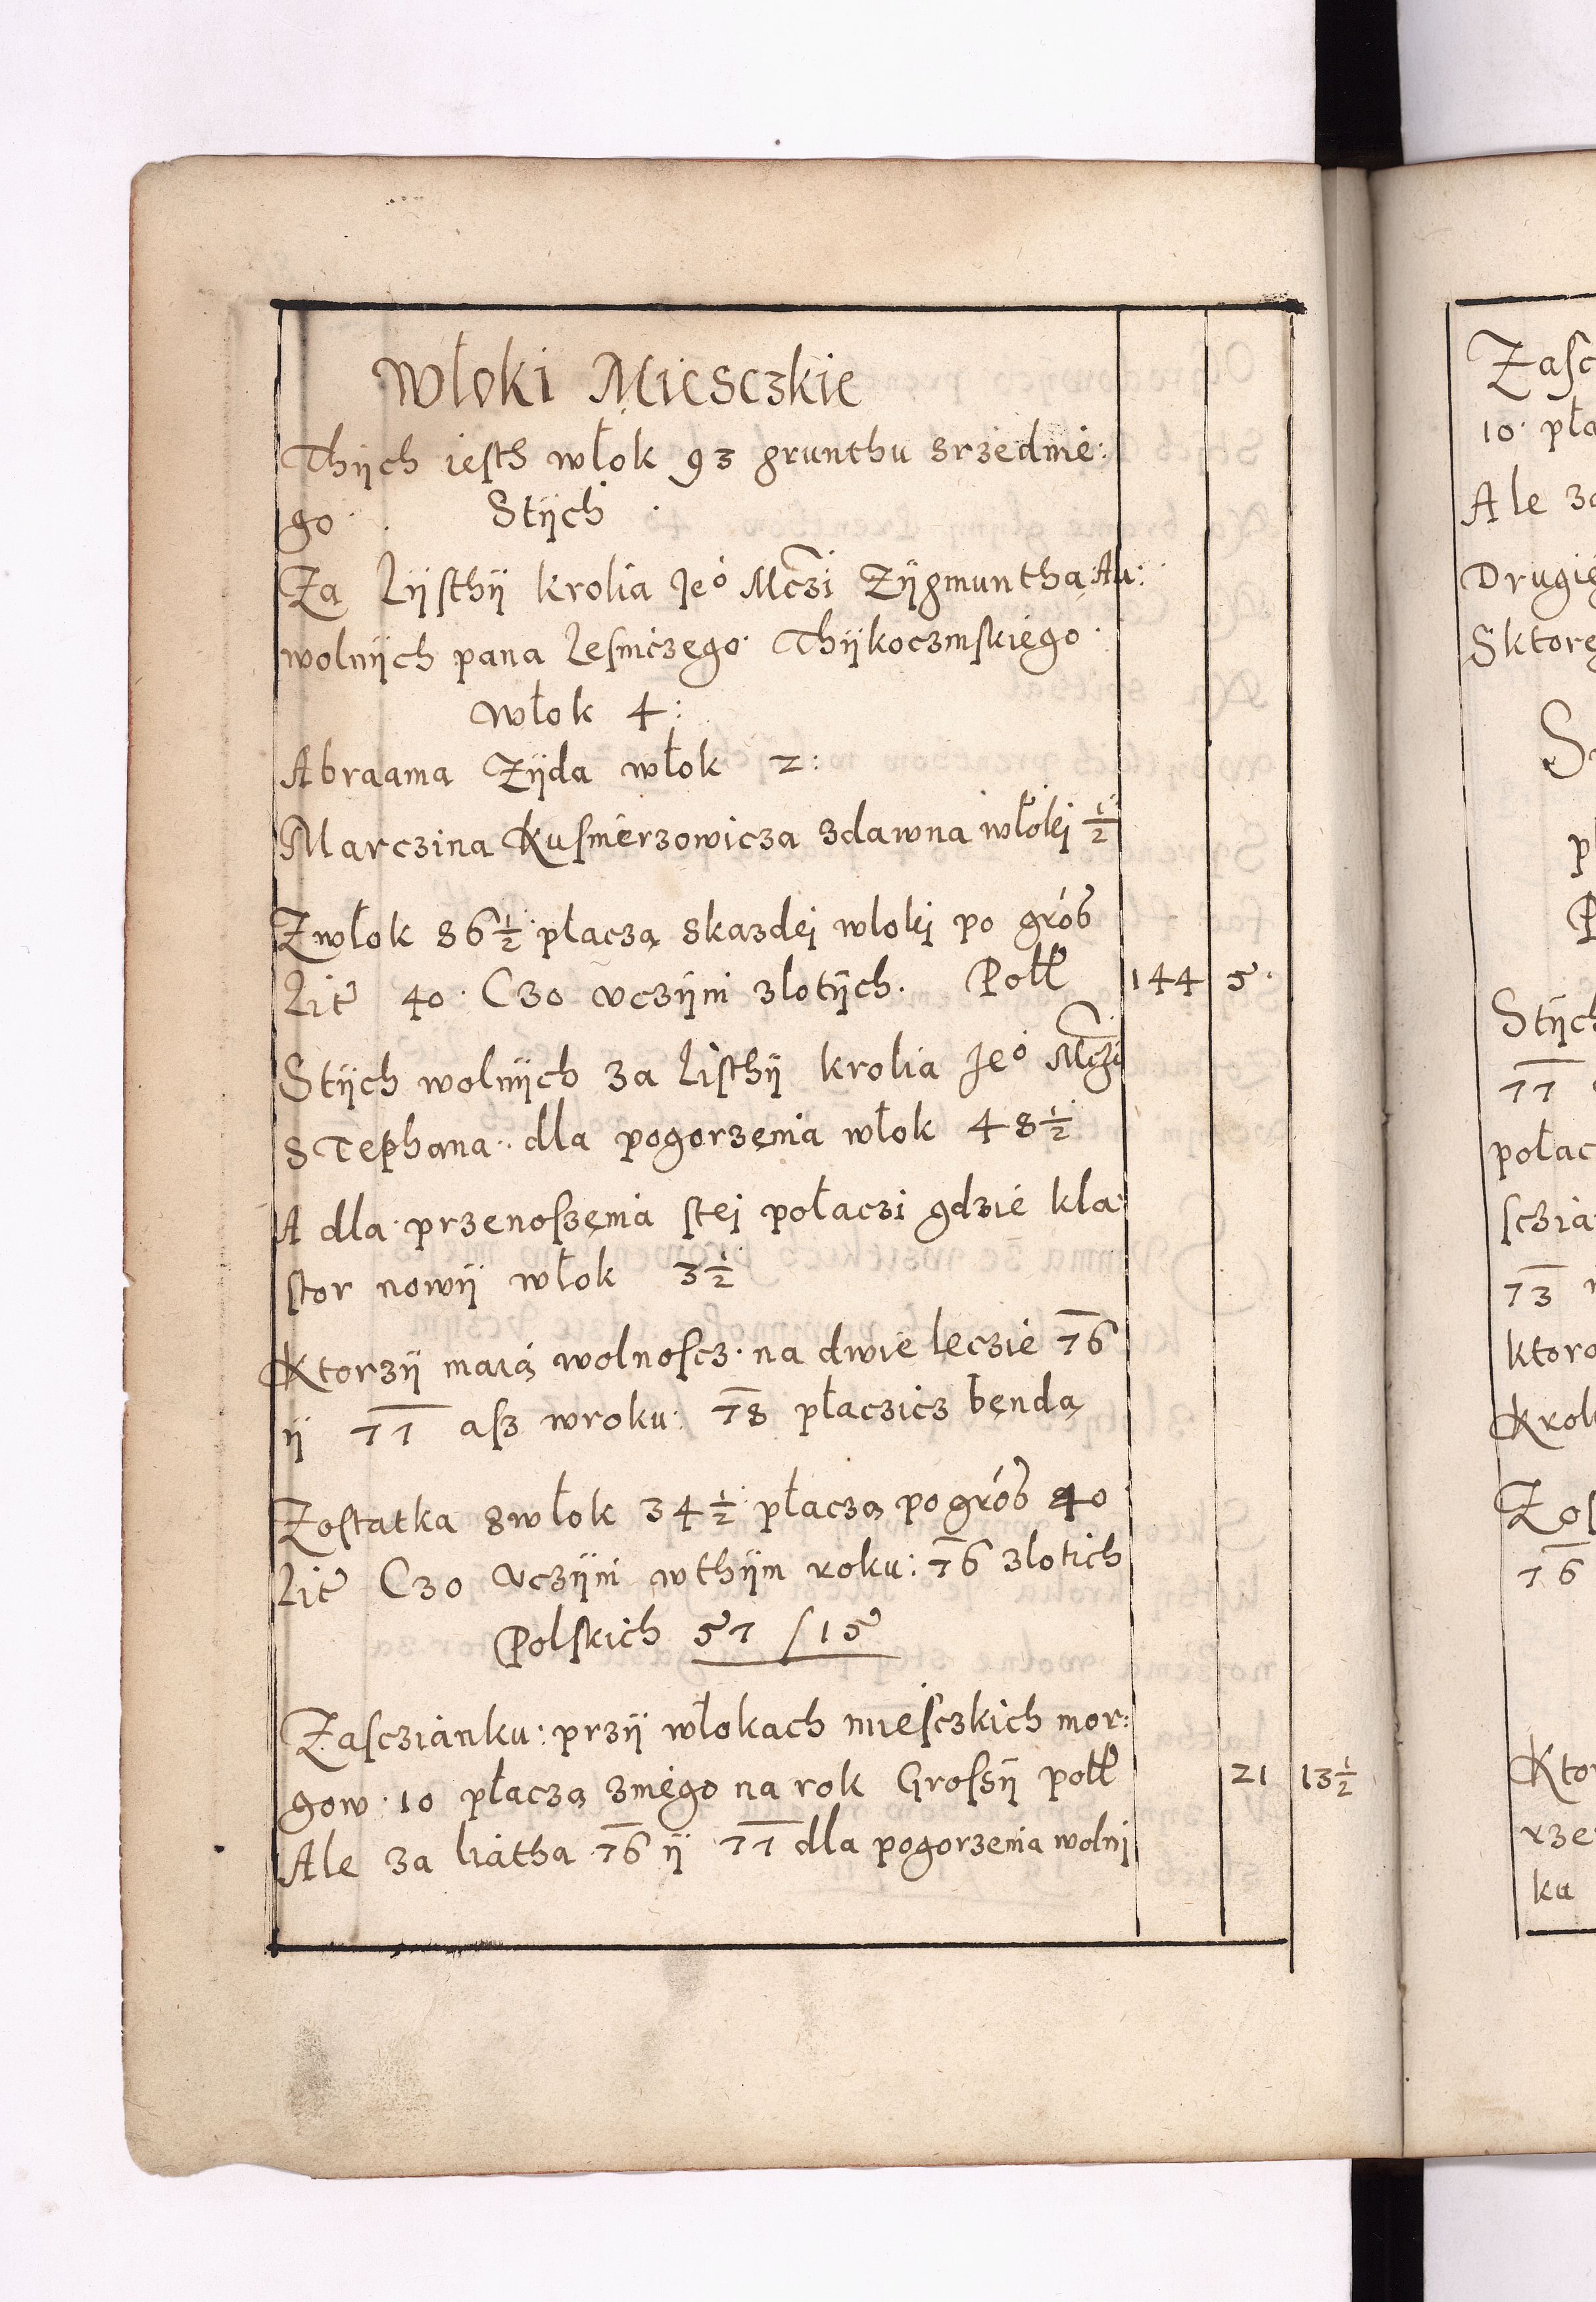 Włoki Miesczkie
Thÿch iesth włok 93 grunthu srzednie:
go. Stÿch
Za Lÿsthÿ krolia Jeo Mczi Zÿgmuntha Au:
wolnÿch pana Lesniczego Thÿkoczinskiego
Włok 4:
Abraama Zÿda włok 2:
Marczina Kusmerzowicza zdawna włoki ½
Zwłok 86½ płaczą skazdei wloki po gros
Lit 40. Czo vczÿni zlotÿch. Poll 144 5.
Stÿch wolnÿch za Listhÿ krolia Jeo Mczi
Stephana. dla pogorzenia włok 48½
A dla przenoszenia stei połaczi gdzie kla:
stor nowÿ włok 3½
Ktorzÿ maią wolnoscz na dwie leczie 76
ÿ 77 asz wroku: 78 płaczicz bendą
Zostatka swłok 34½ płaczą po gros 40
Lit Czo vczÿni wthÿm roku: 76 zlotich
Polskich 57 / 15
Zasczianku: przÿ włokach miesczkich mor:
gow 10 płaczą znego na rok Grossÿ poll 21 13½
Ale za liatha 76 ÿ 77 dla pogorzenia wolni
Zasc
10. pła
Ale za
Drugie
Sktore
Stÿch
77
połac
sczia
73
ktoro
Krol
Zos
76
Ktor
rze
ku